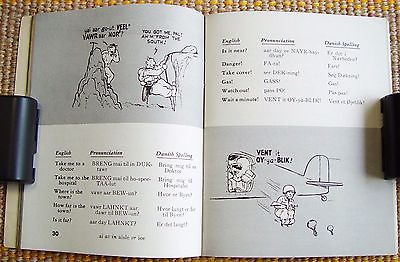 vai aar go-ut VEEL!
VAWR aar NOR!?
YOU GOT ME, PAL!
AH'M FROM THE
SOUTH!
English Pronunciation Danish Spelling
Take me to a BRENG mai til in DUK- Bring mig til en
doctor tawr Doktor
Take me to the BRENG mai til ho-spee- Bring mig til
hospital TAA-lut Hospitalet
Where is the vawr aar BEW-un? Hvor er Byen?
town?
How far is the vawr LAHNKT aar Hvor langt er
town? dawr til BEW-un? der til Byen?
Is it far? aar day LAHNKT? Er det langt?
30 ai as in aisle or ice
English Pronunciation Danish Spelling
Is it near? aar day ee NAYR- Er det i
Nærheden?
Danger! FA-ra! Fare!
Take cover! søg DEK-ning! Søg Dækning!
Gas! GASS! Gas!
Watch out! pass PO! Pas paa!
Wait a minute! VENT it OY-ya-BLIK! Vent et Øjeblik!
VENT it
OY-ya-BLIK!